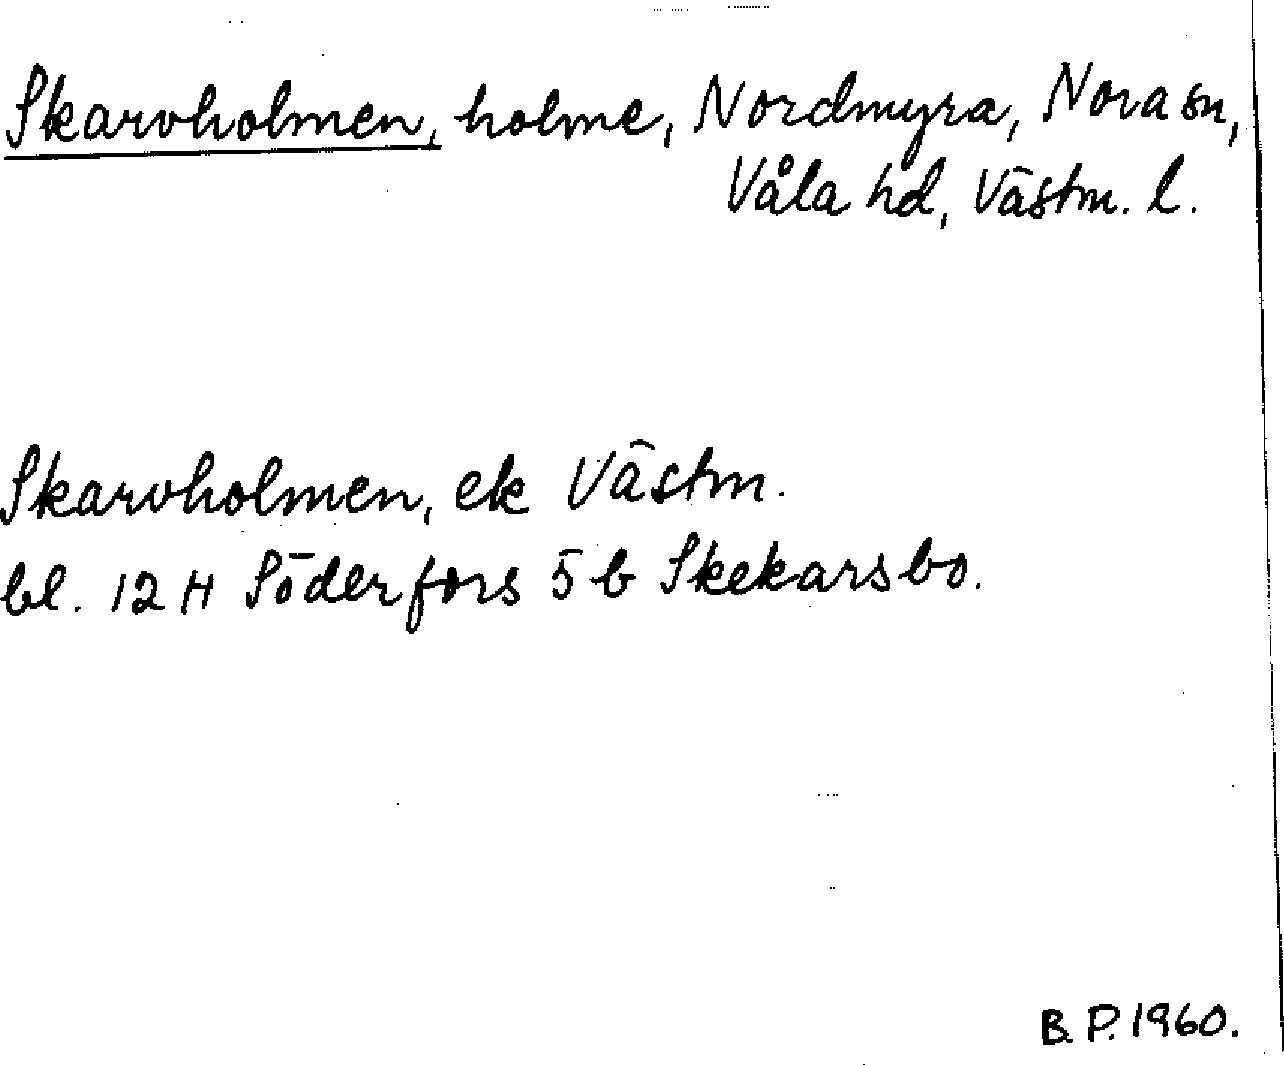 Skarvholmen, holme, Nordmyra, Nora sn,
Våla hd, Västm. l.
Skarvholmen, ek Västm.
bl. 12 H Söderfors 5 b Skekarsbo.
B. P. 1960.